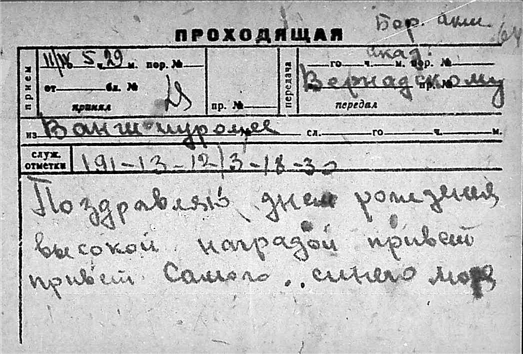 Бор. акт.
ПРОХОДЯЩАЯ
прием 11/IX 5 ч. 29 м. пор. №
от бл. № принял пр. №
передача го ч. м. пор. № передал
акад. Вернадскому
из сл. го ч. м.
служ. отметки 191-13-12/3-18-30
Поздравляю днем рождения
высокой наградой привет
привет Самого.. синего моря